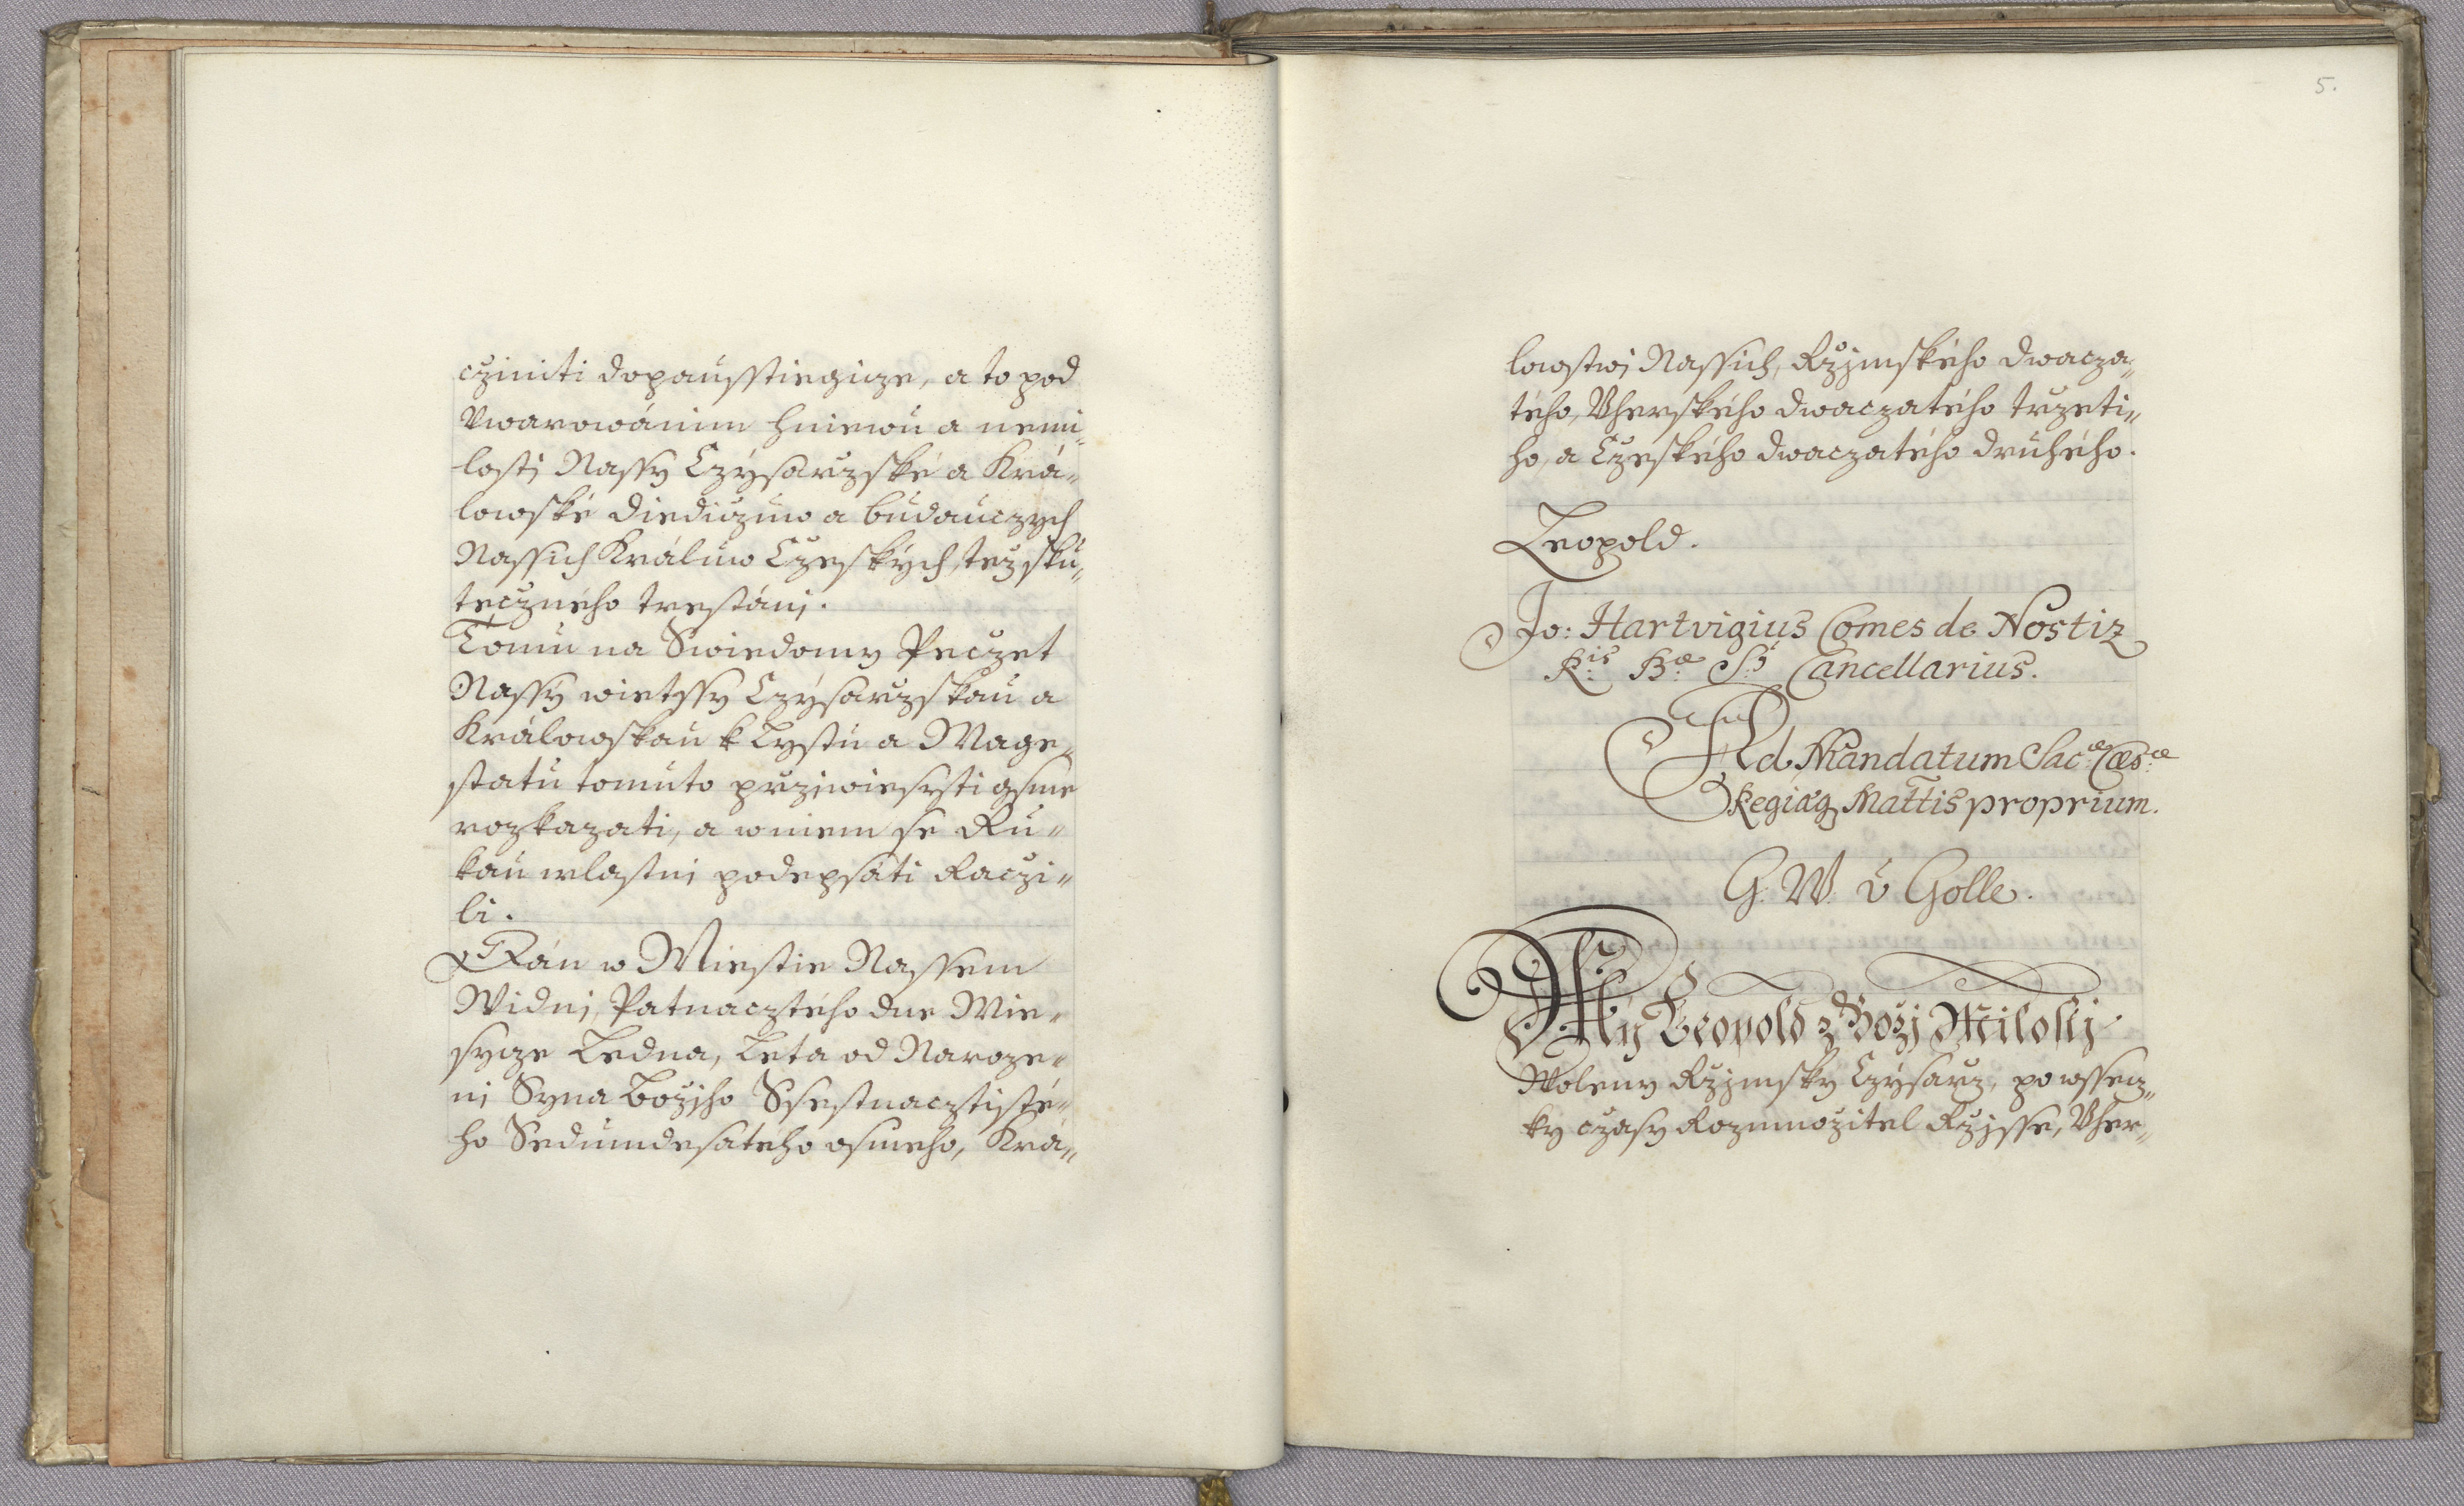 cziniti dopausstiegicze, a to pod
Vwarowánim hniewu a nemi„
losti Nassy Czysarzské a Krá„
lowské diediczuw a budauczych
Nassich Králuw Czeských, též sku„
teczného trestánj.
Tomu na Swiedomy Peczet
Nassy wietssy Czysarzskau a
Králowskau k Lystu a Mage„
statu tomuto przjwiesyti gsme
rozkazati, a wniem se Ru„
kau wlastnj podepsáti Raczi„
li.
Dán w Miestie Nassem
Widnj, Patnacztého dne Mie„
sycze Ledna, Leta od Naroze„
nj Syna božjho Ssestnacztisté„
ho Sedumdesateho osmeho, Krá„
5.
lowstwj Nassich, Rzjmského dwacza„
tého, Vherského dwaczatého trzeti„
ho, a Czeského dwaczatého druhého.
Leopold.
Jo: Hartvigius Comes de Nostiz
R:is B:æ S: Cancellarius.
Ad Mandatum Sac:æ Cæs:æ
Regiæq Mattis proprium.
G: W: v̓ Golle.
My Leopold z Božj Milosti
Woleny Rzjmsky Czysarz, po wssecz„
ky czasy Rozmnožitel Rzjsse, Vher„